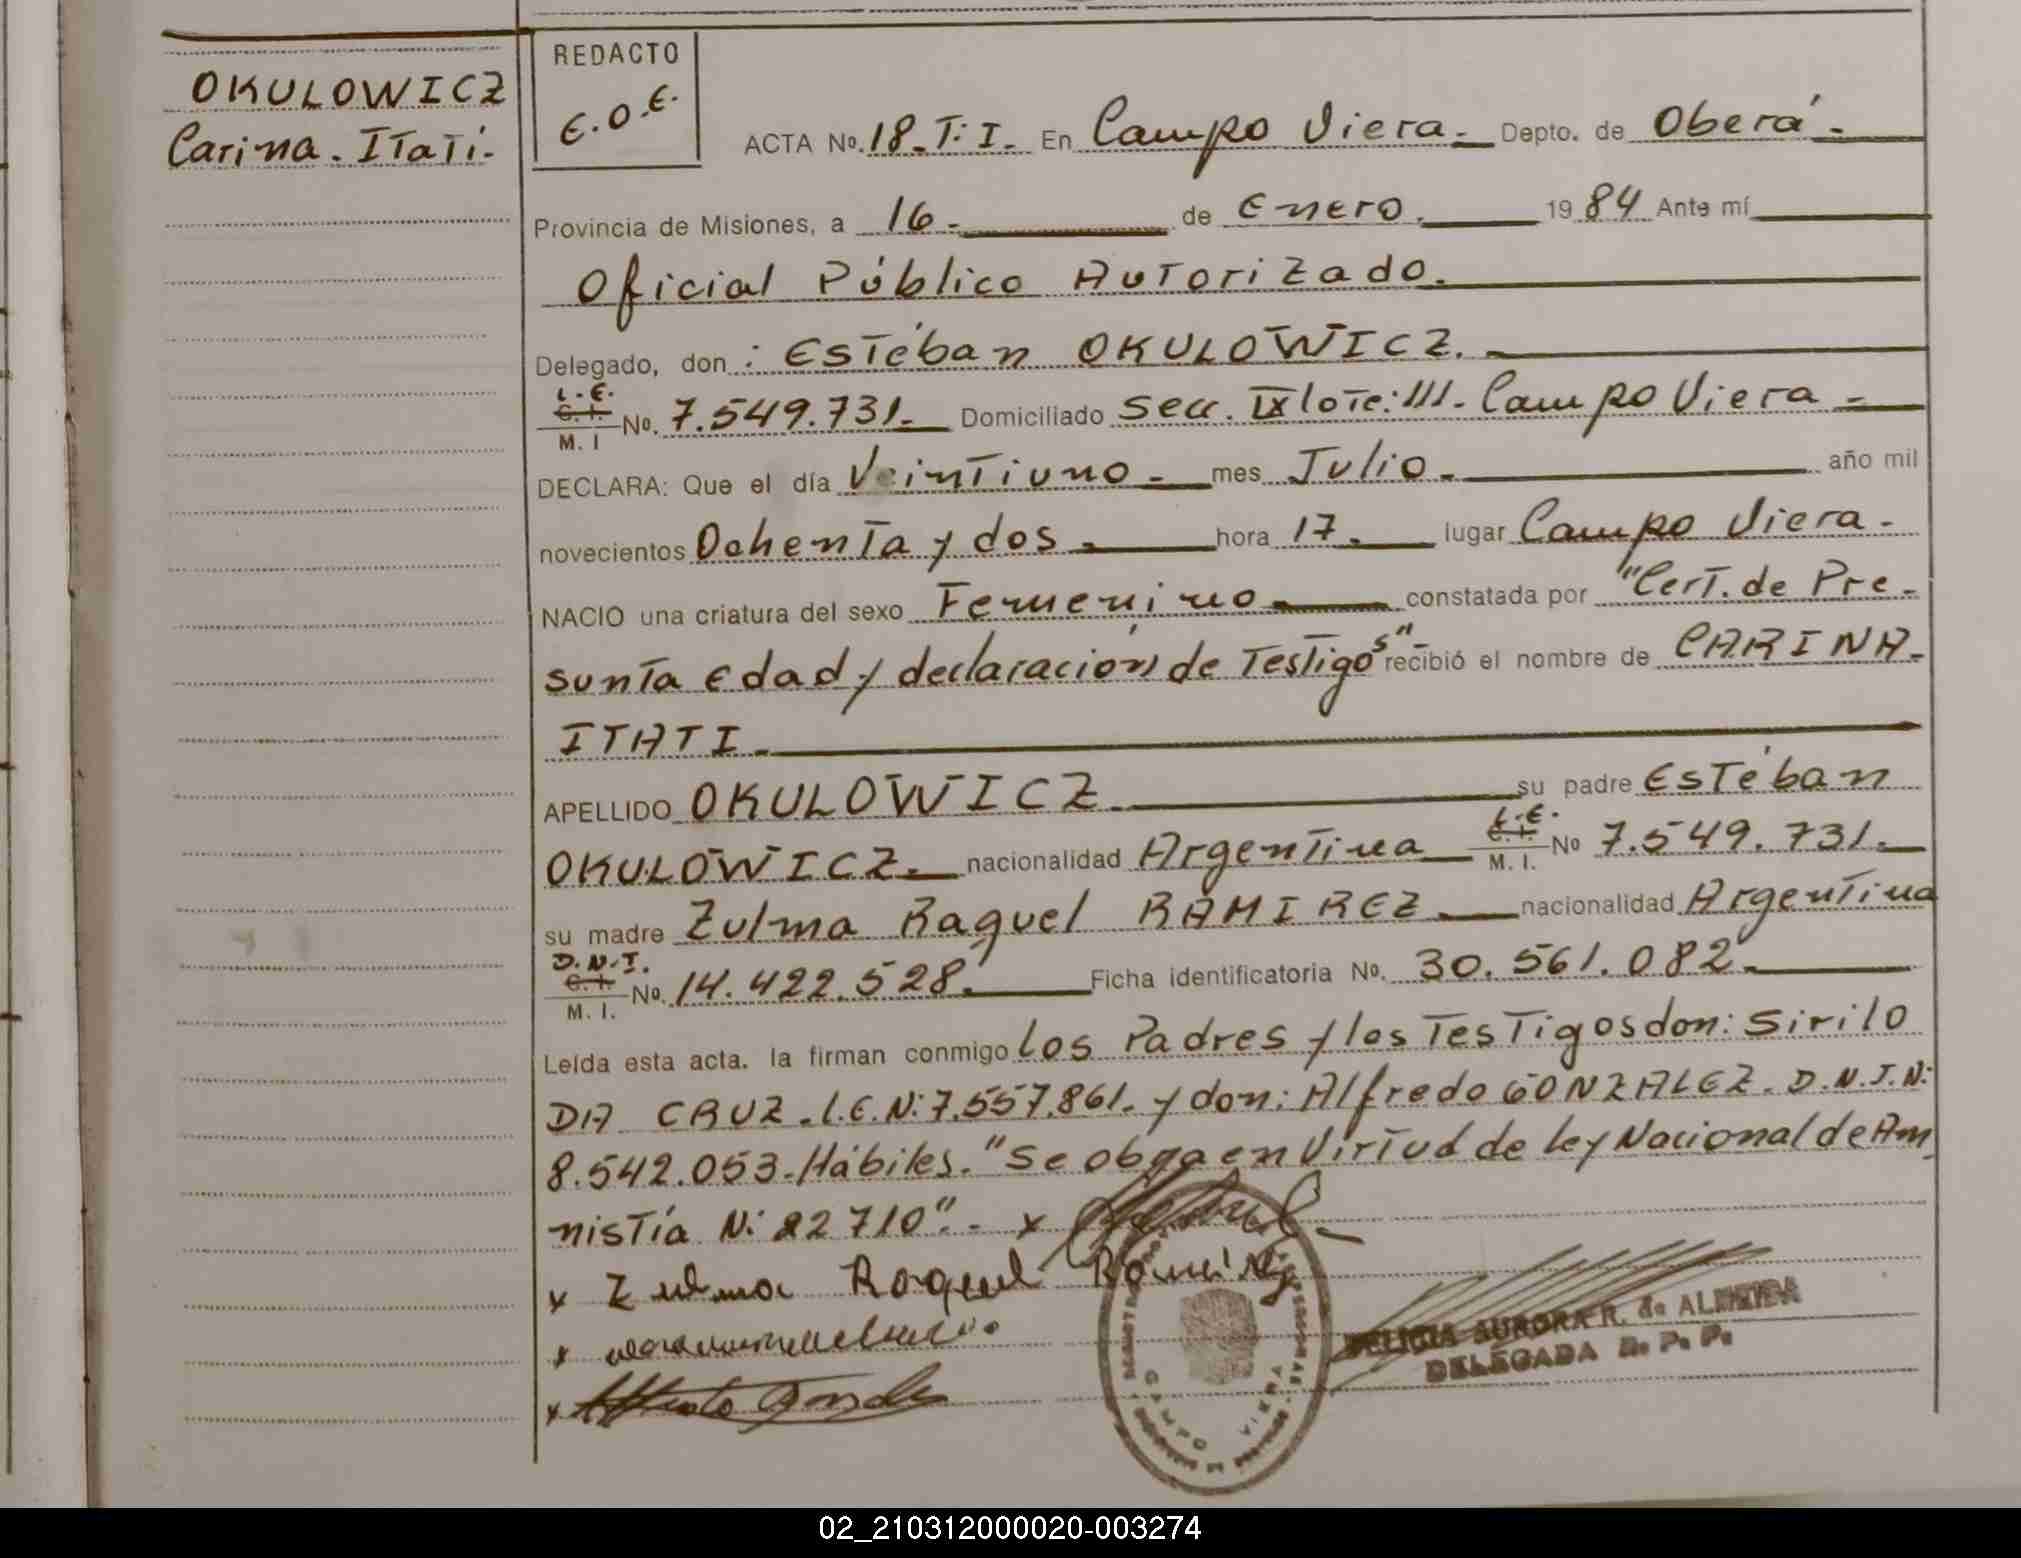 OKULOWICZ
Carina. ITaTí.
REDACTO
E.O.E.
ACTA No. 18.T:I. En Campo Viera. Depto. de Oberá.
Provincia de Misiones, a 16. de Enero. 1984 Ante mí
Oficial Público AuTorizado.
Delegado, don: EsTéban OKULOWICZ.
L.E.
C.I.
M. I No. 7.549.731. Domiciliado Secc. IX loTe: 111. Campo Viera
DECLARA: Que el día VeinTiuno. mes Julio. año mil
novecientos OchenTa y dos. hora 17. lugar Campo Viera.
NACIO una criatura del sexo Femenino constatada por "CerT. de Pre-
sunTa Edad y declaración de TesTigos" recibió el nombre de CARINA.
ITATI.
APELLIDO OKULOWICZ su padre EsTéban
OKULOWICZ. nacionalidad ArgenTina L.E. C.I. M. I. No 7.549.731.
su madre Zulma Raquel RAMIREZ nacionalidad ArgenTina
D.N.I.
C.I.
M. I. No. 14.422.528. Ficha identificatoria No. 30.561.082.
Leída esta acta. la firman conmigo los Padres y los TesTigos don: Sirilo
DA CRUZ. L.E.N: 7.557.861. y don: Alfredo GONZALEZ. D.N.I.N:
8.542.053. Hábiles. "Se obra en VirTud de ley Nacional de Am
nisTía N: 22710".- x
x Zulma Raquel Ramirez
x
x
CAMPO VIERA
FELICIA AURORA R. de ALMEIDA
DELEGADA R. P. P.
02_210312000020-003274